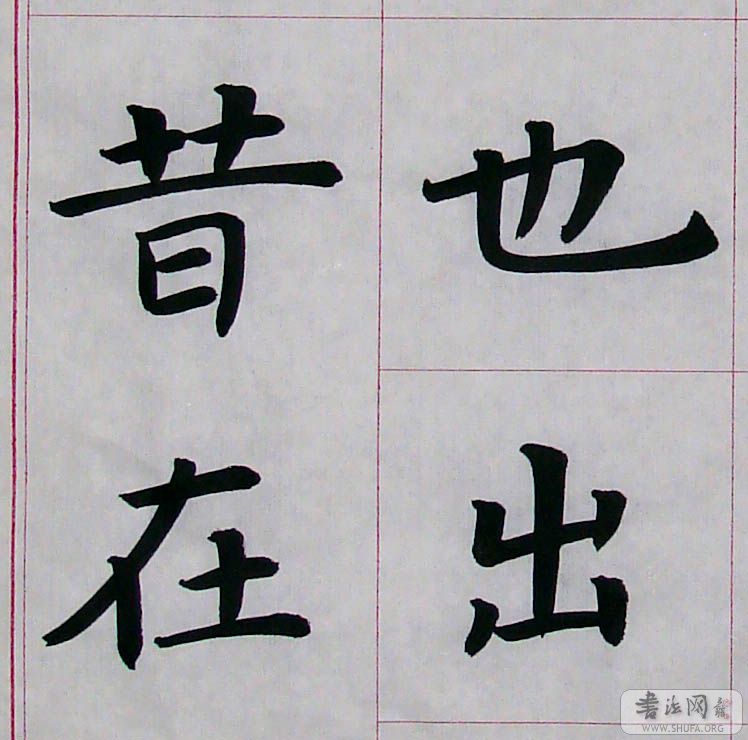 也出
昔在
书法网
WWW.SHUFA.ORG